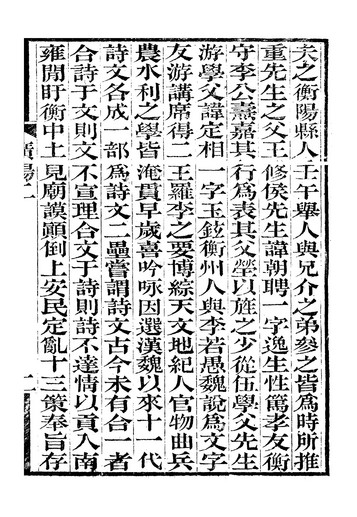 夫之衡陽縣人壬午舉人與兄介之弟參之皆爲時所推
重先生之父王修侯先生諱朝聘一字逸生性篤孝友衡
守李公燾嘉其行爲表其父塋以旌之少從伍學父先生
游學父諱定相一字玉鉉衡州人與李若愚魏說爲文字
友游講席得二王羅李之要博綜天文地紀人官物曲兵
農水利之學皆淹貫早歲喜吟咏因選漢魏以來十一代
詩文各成一部爲詩文二壘嘗謂詩文古今未有合一者
合詩于文則文不宣理合文于詩則詩不達情以貢入南
雍閒盱衡中土見廟謨顚倒上安民定亂十三策奉旨存
廣陽二